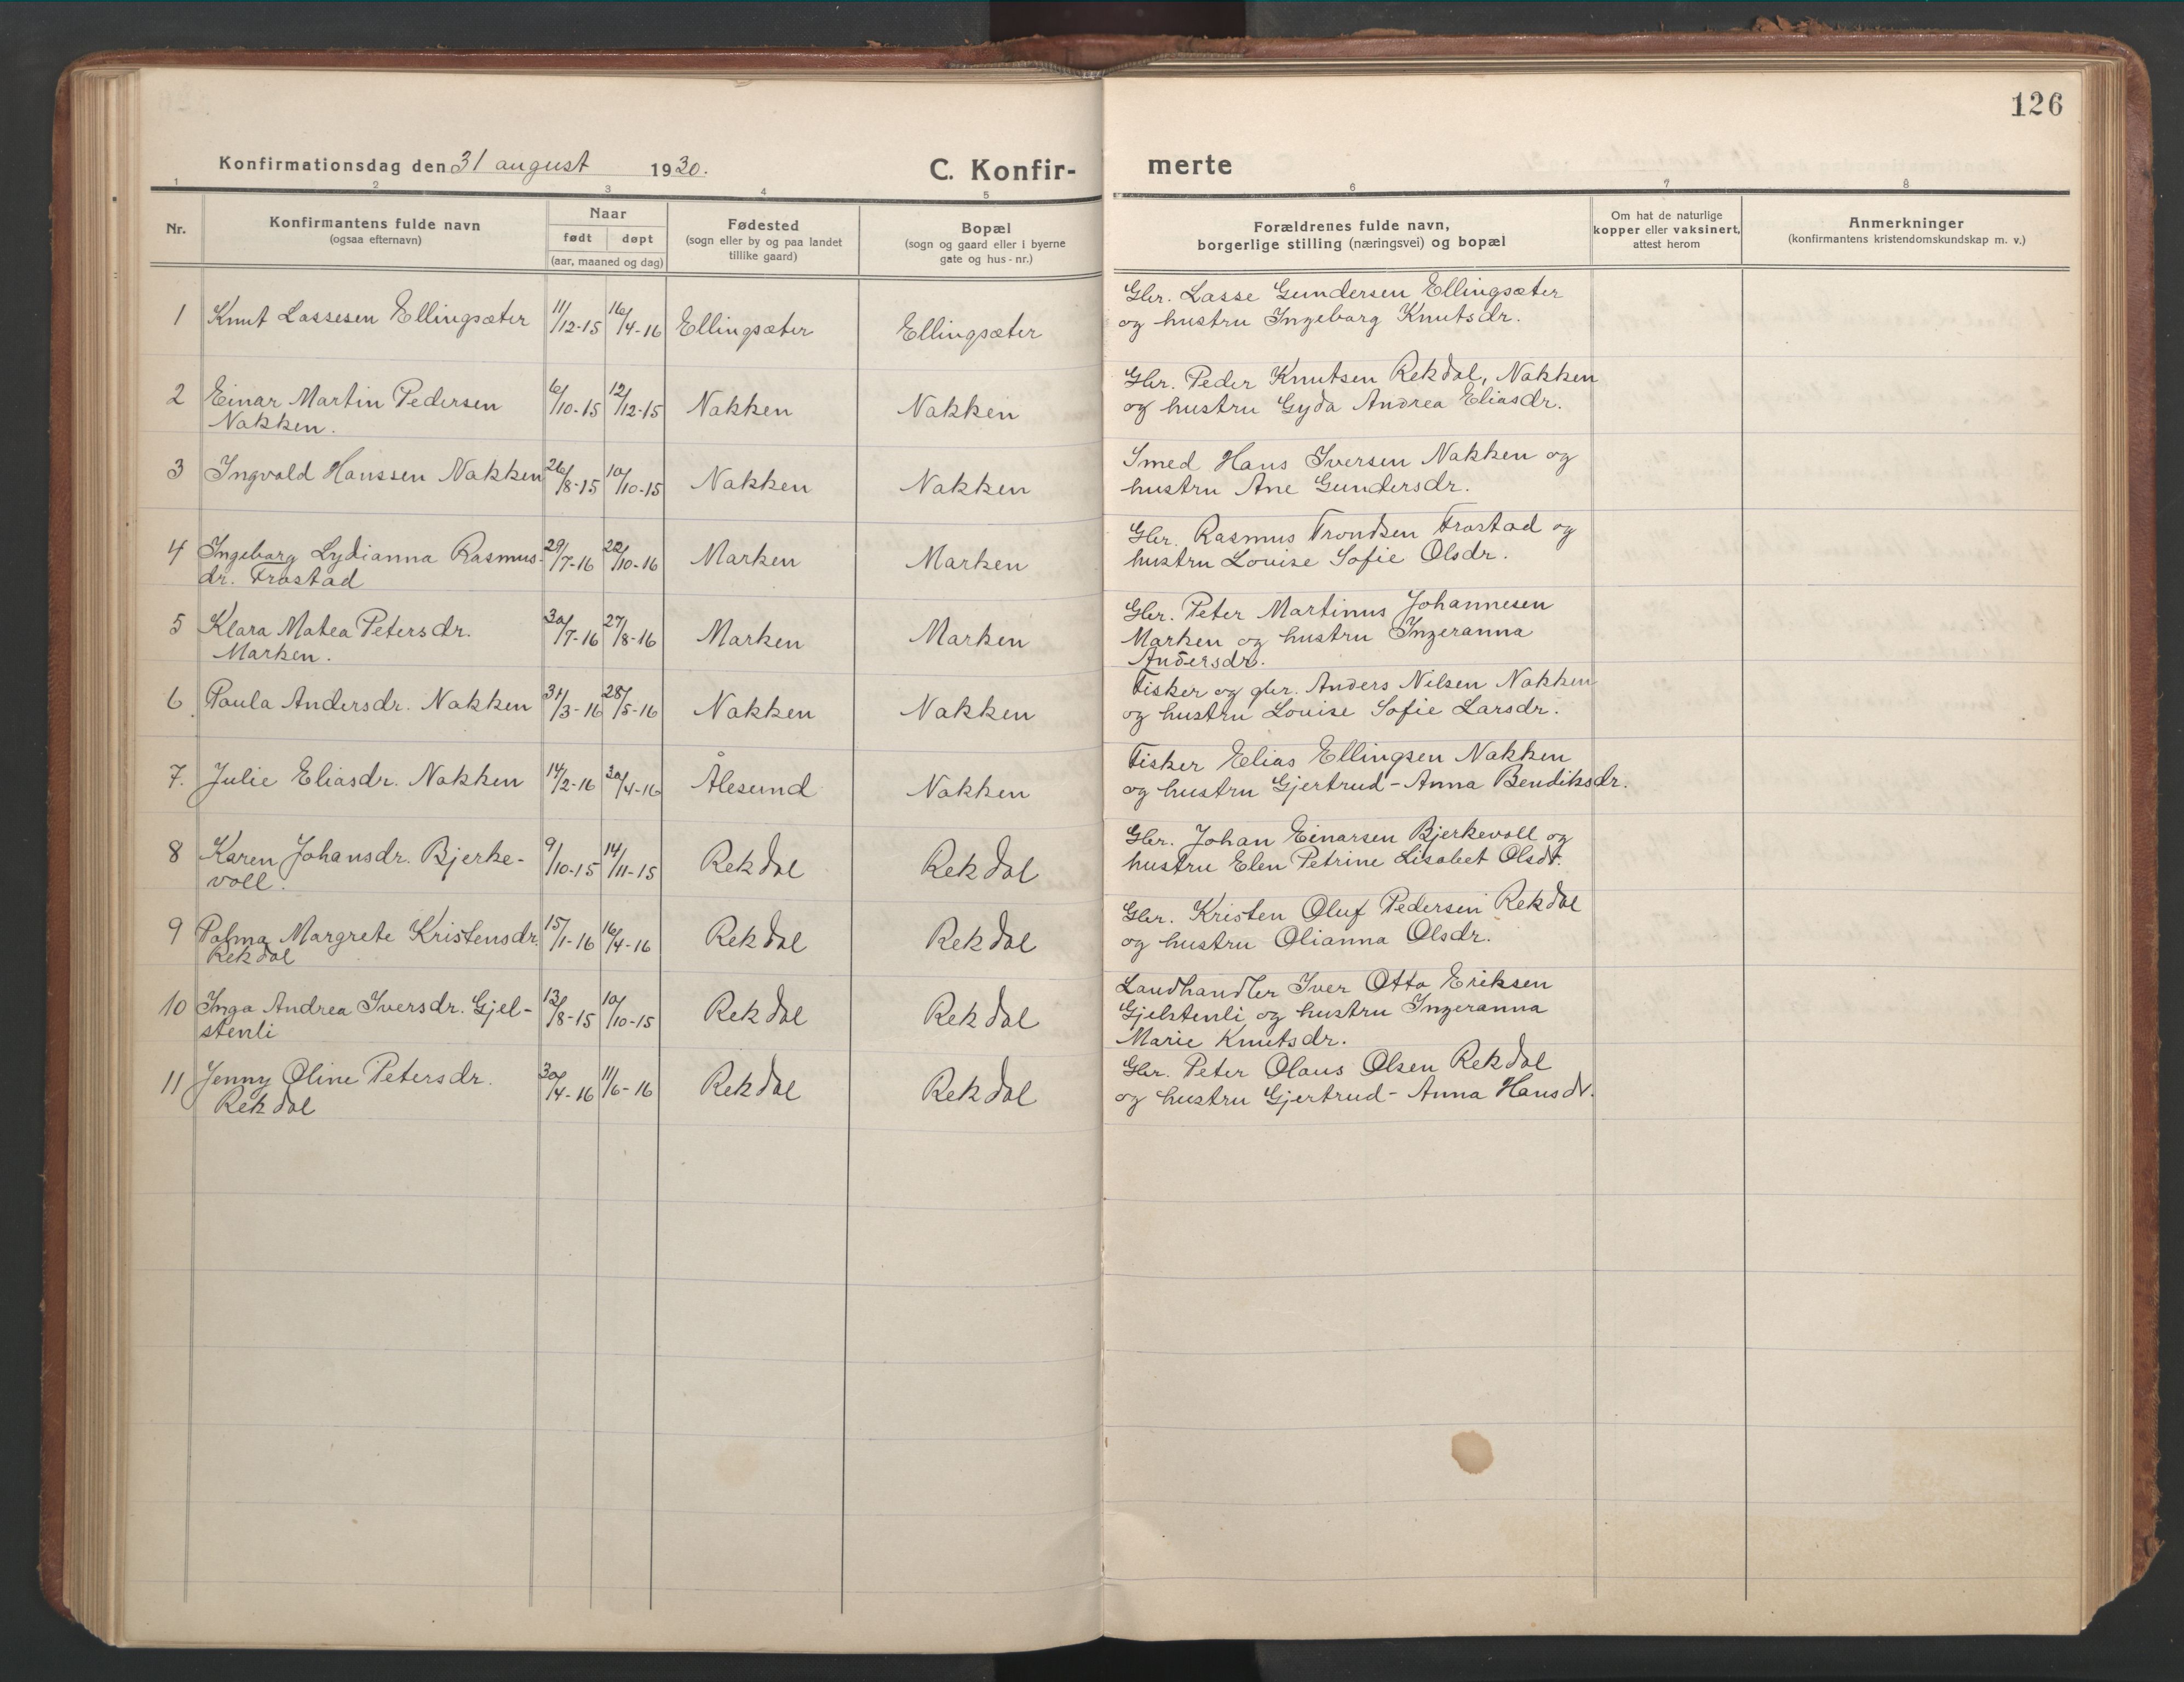 126
Konfirmationsdag den 31 august 1930.
C. Konfir-
merte
1 2 3 4 5 6 7 8
Nr.
Konfirmantens fulde navn
(ogsaa efternavn)
Naar
født døpt
(aar, maaned og dag)
Fødested
(sogn eller by og paa landet
tillike gaard)
Bopæl
(sogn og gaard eller i byerne
gate og hus-nr.)
Forældrenes fulde navn,
borgerlige stilling (næringsvei) og bopæl
Om hat de naturlige
kopper eller vaksinert,
attest herom
Anmerkninger
(konfirmantens kristendomskundskap m. v.)
1 Knut Lassesen Ellingsæter 11/12-15 16/4-16 Ellingsæter Ellingsæter
Gbr. Lasse Gundersen Ellingsæter
og hustru Ingeborg Knutsdr.
2 Einar Martin Pedersen 6/10-15 12/12-15 Nakken Nakken
Nakken.
Gbr. Peder Knutsen Rekdal, Nakken
og hustru Gyda Andrea Eliasdr.
3 Ingvald Hanssen Nakken 26/8-15 10/10-15 Nakken Nakken
Smed Hans Iversen Nakken og
hustru Ane Gundersdr.
4 Ingeborg Lydianna Rasmus- 29/7-16 22/10-16 Marken Marken
dr. Frostad
Gbr. Rasmus Trondsen Frostad og
hustru Louise Sofie Olsdr.
5 Klara Matea Petersdr. 30/7-16 27/8-16 Marken Marken
Marken.
Gbr. Peter Martinus Johannesen
Marken og hustru Ingeranna
Andersdr.
6 Paula Andersdr. Nakken 31/3-16 28/5-16 Nakken Nakken
Fisker og gbr. Anders Nilsen Nakken
og hustru Louise Sofie Larsdr.
7. Julie Eliasdr. Nakken 14/2-16 30/4-16 Ålesund Nakken
Fisker Elias Ellingsen Nakken
og hustru Gjertrud-Anna Bendiksdr.
8 Karen Johansdr. Bjerke- 9/10-15 14/11-15 Rekdal Rekdal
voll.
Gbr. Johan Einarsen Bjerkevoll og
hustru Elen Petrine Lisabet Olsdr.
9 Palma Margrete Kristensdr. 15/1-16 16/4-16 Rekdal Rekdal
Rekdal
Gbr. Kristen Oluf Pedersen Rekdal
og hustru Olianna Olsdr.
10 Inga Andrea Iversdr. Gjel- 13/8-15 10/10-15 Rekdal Rekdal
stenli
Landhandler Iver Otto Eriksen
Gjelstenli og hustru Ingeranna
Marie Knutsdr.
11 Jenny Oline Petersdr. 30/4-16 11/6-16 Rekdal Rekdal
Rekdal
Gbr. Peter Olaus Olsen Rekdal
og hustru Gjertrud-Anna Hansdr.